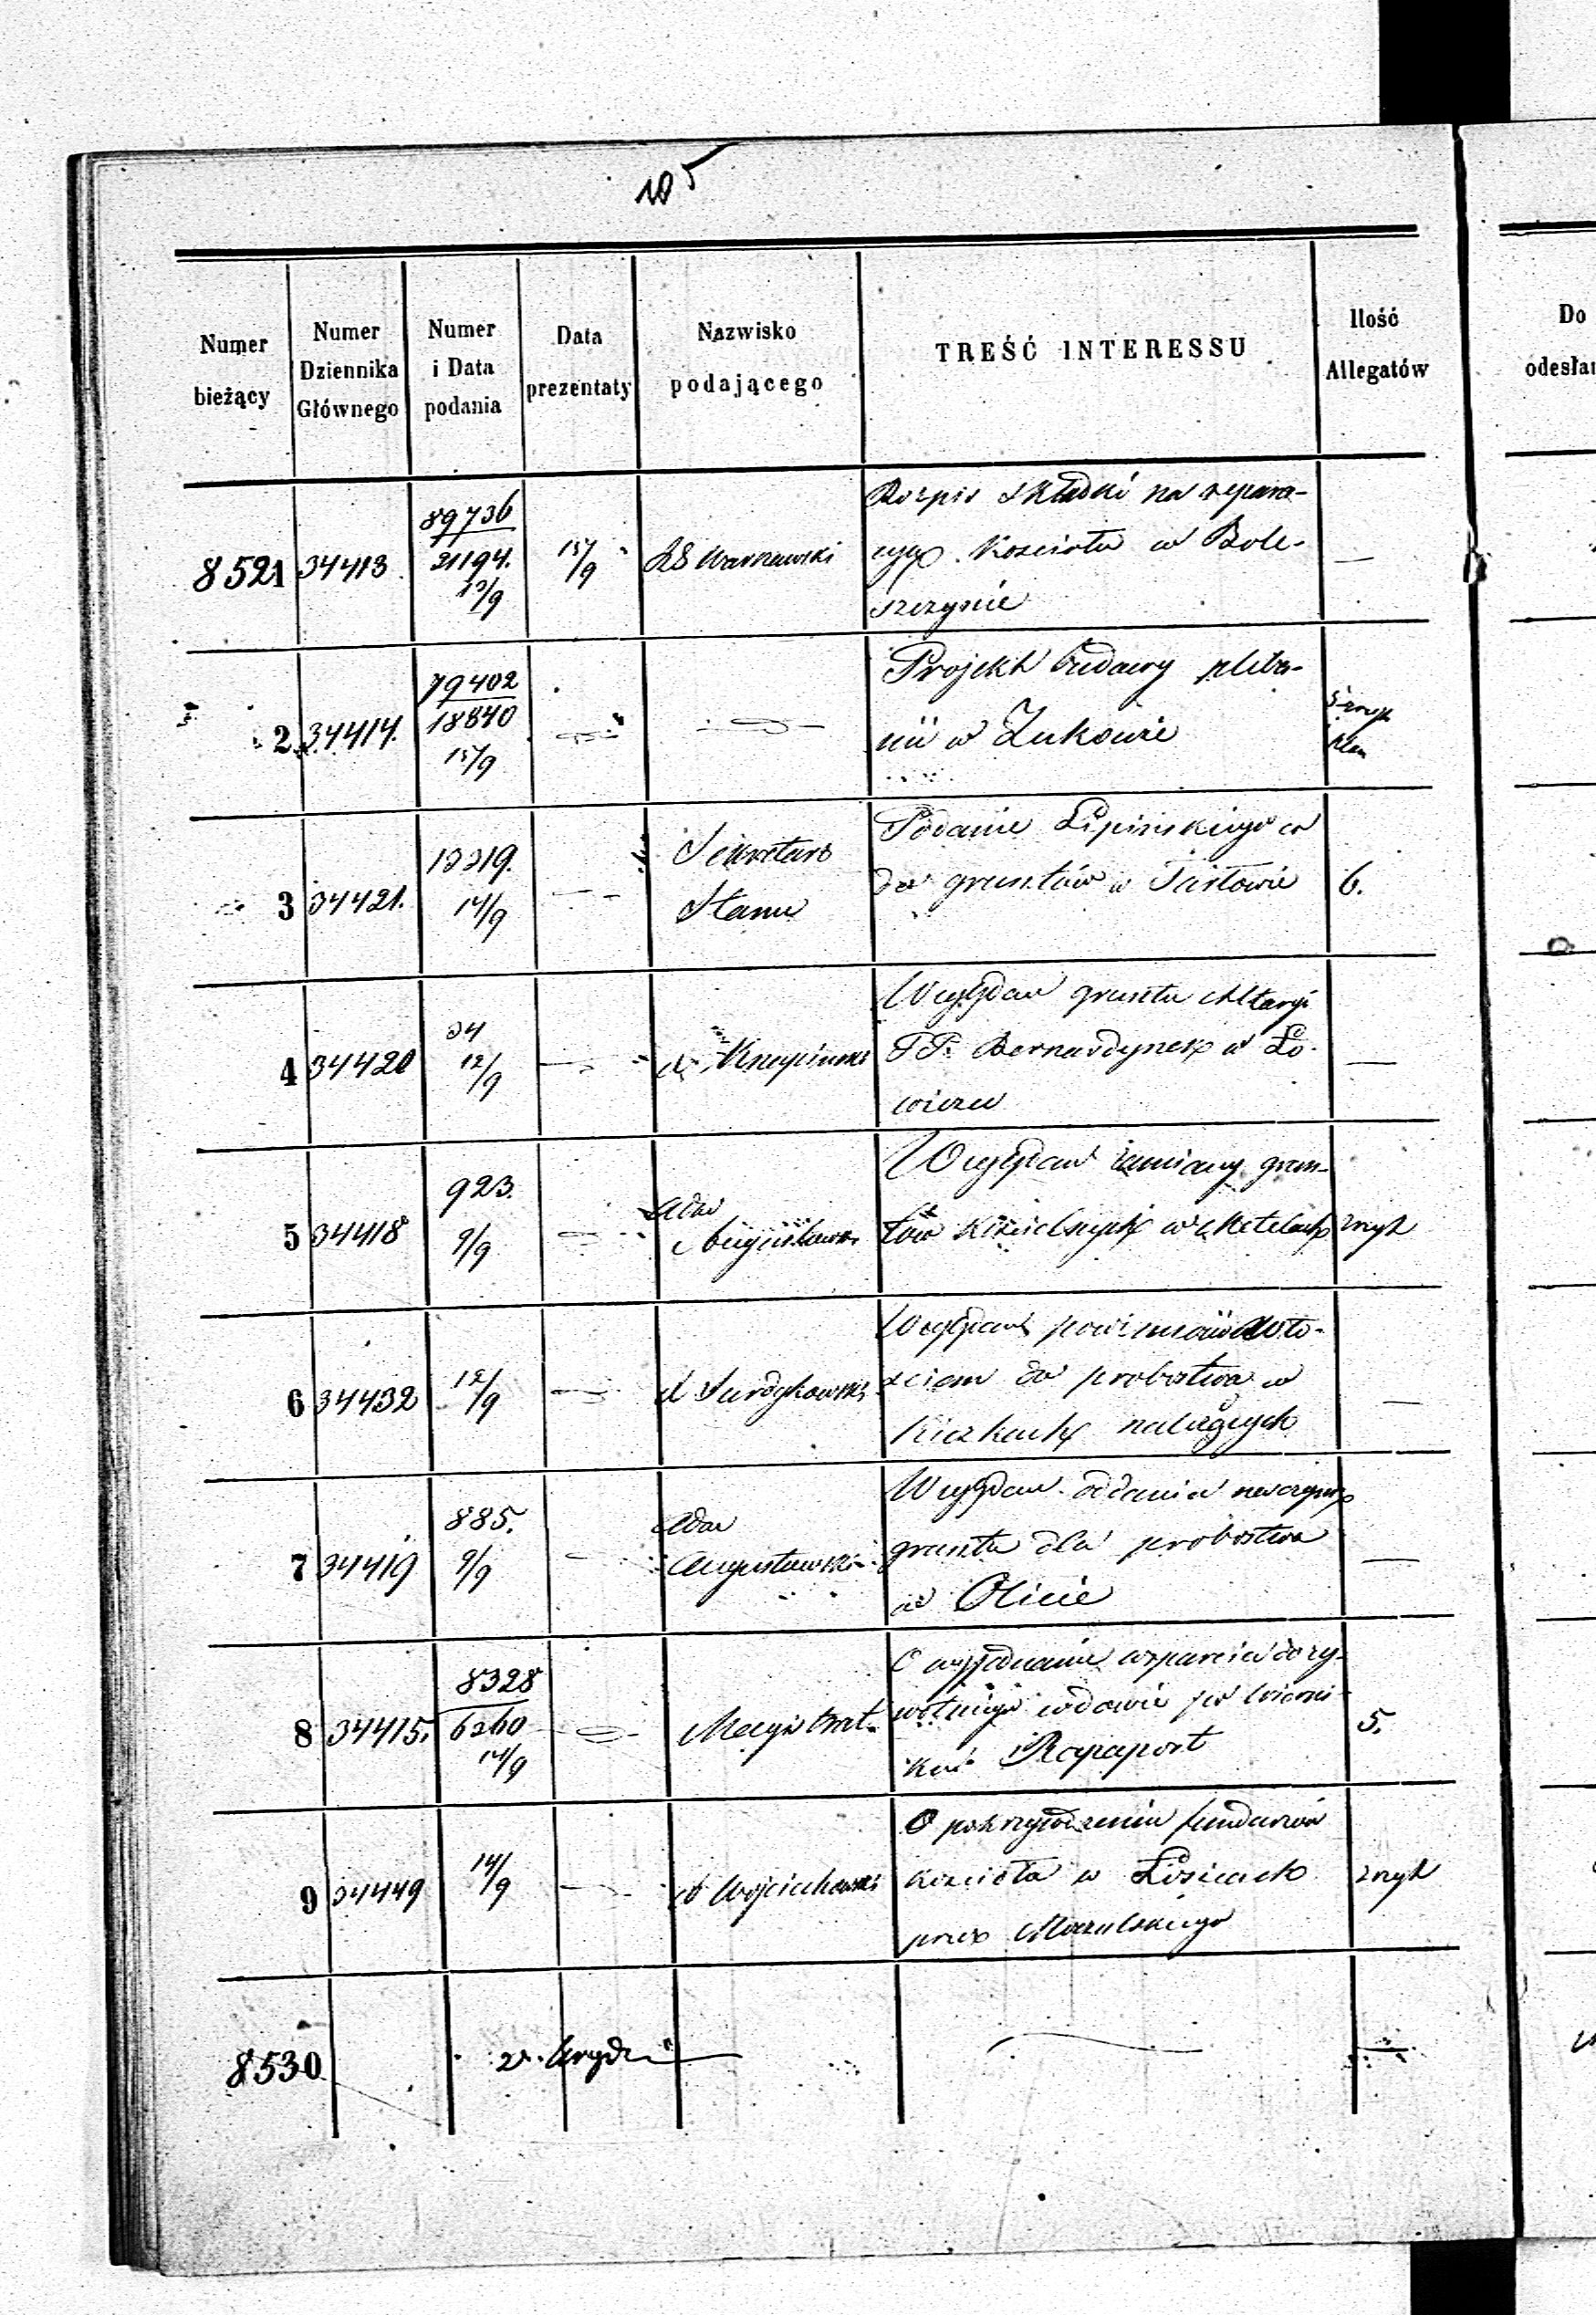 105
Numer bieżący
Numer Dziennika Głównego
Numer i Data podania
Data prezentaty
Nazwisko podającego
TREŚĆ INTERESSU
Ilość Allegatów
Do
odesłan
8521 34413 89736
21194.
15/9
RG Warszawski
Rozpis składki na repara-
cyą Kościoła w Bole-
szczynie
—
2 34414. 79402
18840
15/9
Projekt budowy pleba-
nii w Żukowie
plan
3 34421.
14/9
Sekretarz
Stanu
Podanie Lipińskiego co
do gruntów w Tarłowie
6.
4 34420 34
12/9
Względem gruntu
PP. Bernardynek w Ło-
wiczu
—
5 34418 923.
9/9
Adm
Augustowski
Względem zamiany grun-
tów kościelnych w Metelach
zszyt
6 34432 12/9
Względem powinności włó-
ścian do probostwa w
należących
—
7 34419 885.
9/9
Adm
Augustowski
Względem oddania
gruntu dla probostwa
w Olicie
—
8 34415. 8328
6260
14/9
Magistrat
O wyjednanie wsparcia doży-
wotniego wdowie po
Rapaport
5.
9 34449 14/9
X Wojciechowski
O pokrzywdzeniu funduszów
kościoła w Łosicach
przez
zszyt
8530